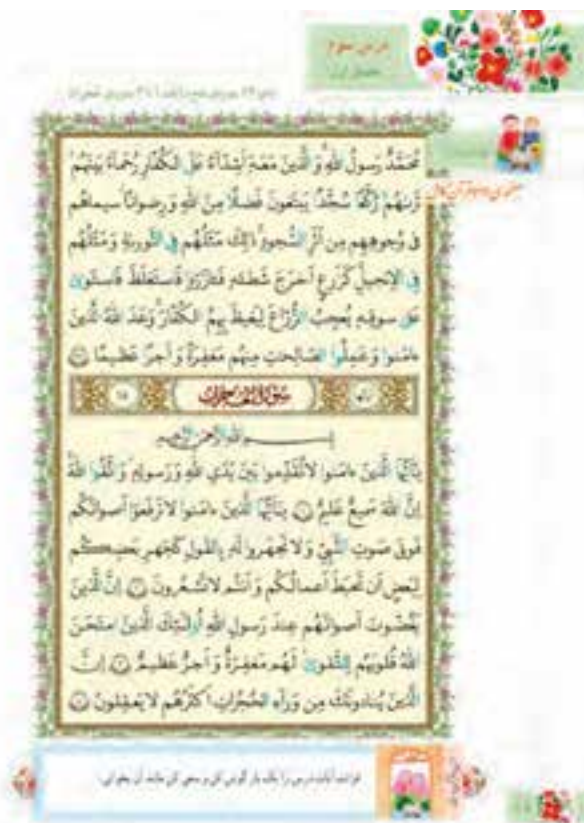 درس سوم
جلسه‌ی اول
مُحَمَّدٌ رَسولُ اللهِ وَ الَّذينَ مَعَهُ اَشِدّآءُ عَلَى الكُفّارِ رُحَمآءُ بَينَهُم
تَرىٰهُم رُكَّعًا سُجَّدًا يَبتَغونَ فَضلًا مِنَ اللهِ وَ رِضوانًا سيماهُم
فى وُجوهِهِم مِن اَثَرِ السُّجودِ ذٰلِكَ مَثَلُهُم فِى التَّورىٰةِ وَ مَثَلُهُم
فِى الاِنجيلِ كَزَرعٍ اَخرَجَ شَطـَٔهُ فَـٔازَرَهُ فَاستَغلَظَ فَاستَوىٰ
عَلىٰ سوقِهِ يُعجِبُ الزُّرّاعَ لِيَغيظَ بِهِمُ الكُفّارَ وَعَدَ اللهُ الَّذينَ
ءامَنوا وَ عَمِلُوا الصّالِحاتِ مِنهُم مَغفِرَةً وَ اَجرًا عَظيمًا ۲۹
سُورَةُ الحُجُرات ۱۸
بِسمِ اللهِ الرَّحمٰنِ الرَّحيمِ
يٰٓاَيُّهَا الَّذينَ ءامَنوا لا تُقَدِّموا بَينَ يَدَىِ اللهِ وَ رَسولِهِ وَ اتَّقُوا اللهَ
اِنَّ اللهَ سَميعٌ عَليمٌ ۱ يٰٓاَيُّهَا الَّذينَ ءامَنوا لا تَرفَعوٓا اَصواتَكُم
فَوقَ صَوتِ النَّبِىِّ وَ لا تَجهَروا لَهُ بِالقَولِ كَجَهرِ بَعضِكُم
لِبَعضٍ اَن تَحبَطَ اَعمالُكُم وَ اَنتُم لا تَشعُرونَ ۲ اِنَّ الَّذينَ
يَغُضّونَ اَصواتَهُم عِندَ رَسولِ اللهِ اُولٰٓئِكَ الَّذينَ امتَحَنَ
اللهُ قُلوبَهُم لِلتَّقوىٰ لَهُم مَغفِرَةٌ وَ اَجرٌ عَظيمٌ ۳ اِنَّ
الَّذينَ يُنادونَكَ مِن وَرآءِ الحُجُراتِ اَكثَرُهُم لا يَعقِلونَ ۴
قرائت آیات درس را یک بار گوش کن و سعی کن مانند آن بخوانی.